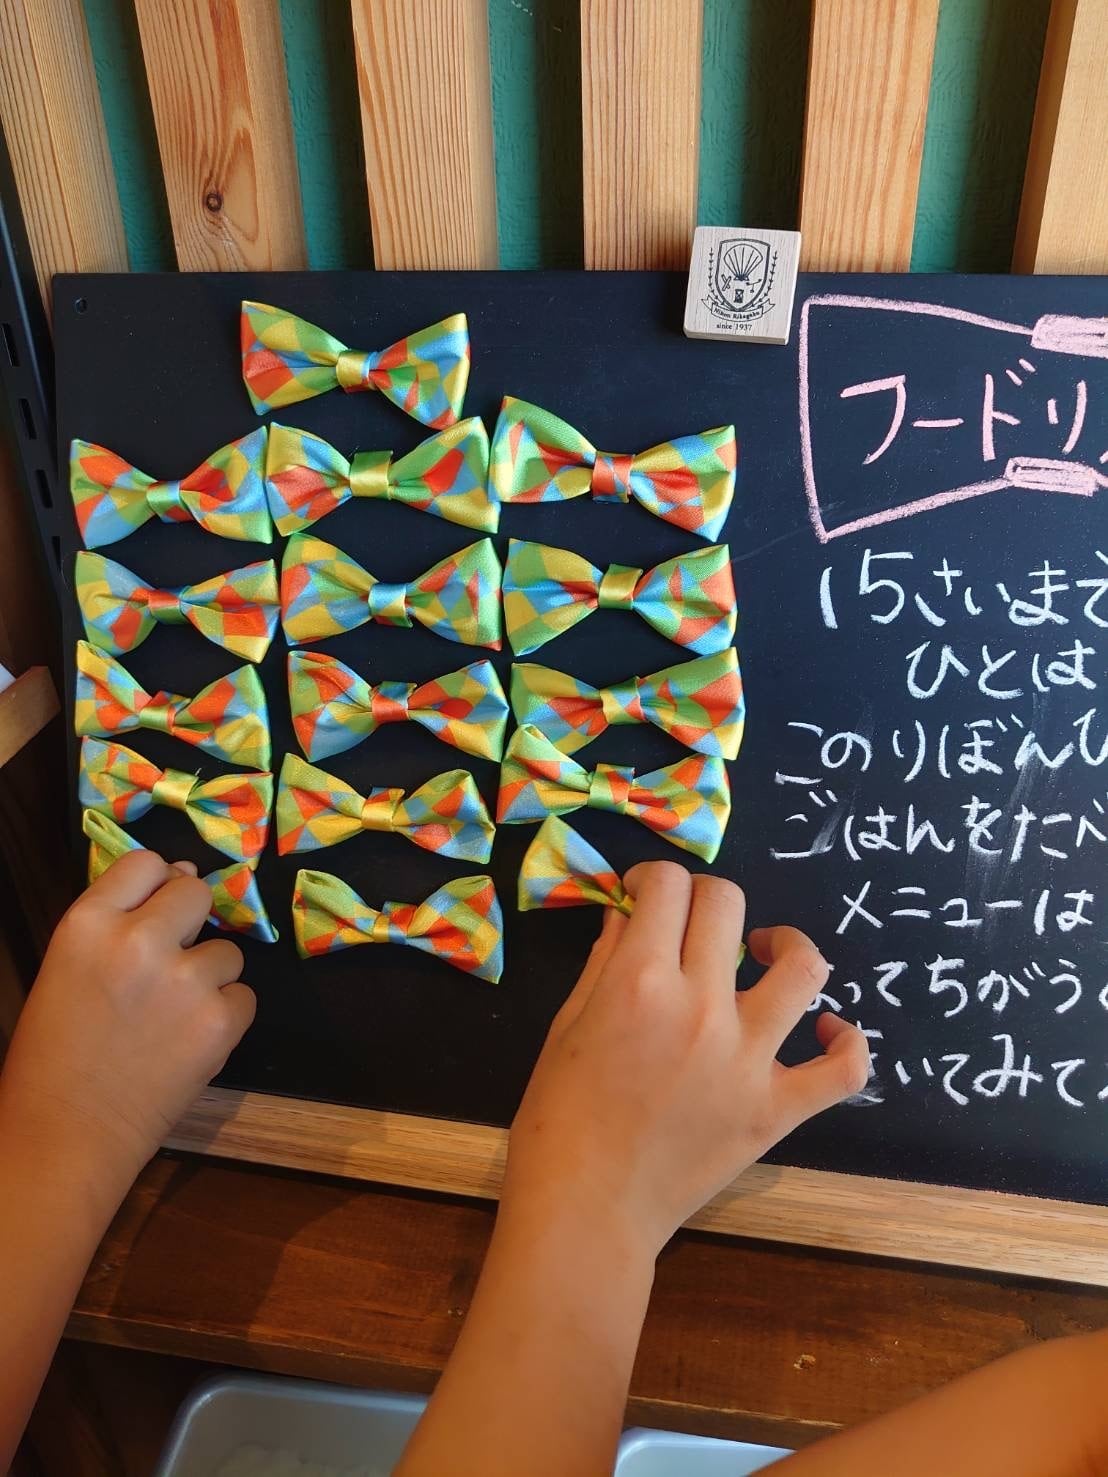 Nihon Rikagaku
since 1937
フードリ
15さいまで
ひとは
このりぼんひ
ごはんをたべ
メニューは
よってちがう
きいてみて